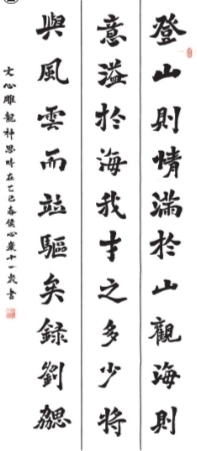 登山則情滿於山觀海則
意溢於海我才之多少將
與風雲而並驅矣錄劉勰
文心雕龍神思時在乙巳春侯心爰十一歲書